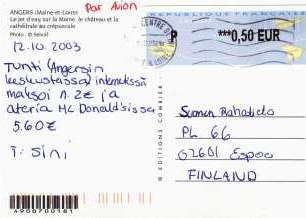 ANGERS (Maine-et-Loire)
Le jet d'eau sur la Maine, le château et la
cathédrale au crépuscule
Par Avion
12.10.2003
Tunti Angersin
keskustassa internetissä
maksoi n. 2€ ja
ateria Mc Donald'sissa
5.60€
T: Sini
***0,50 EUR
P
Suomen Rahatieto
PL 66
02601 Espoo
FINLAND
EDITIONS COMBIER
4900700161